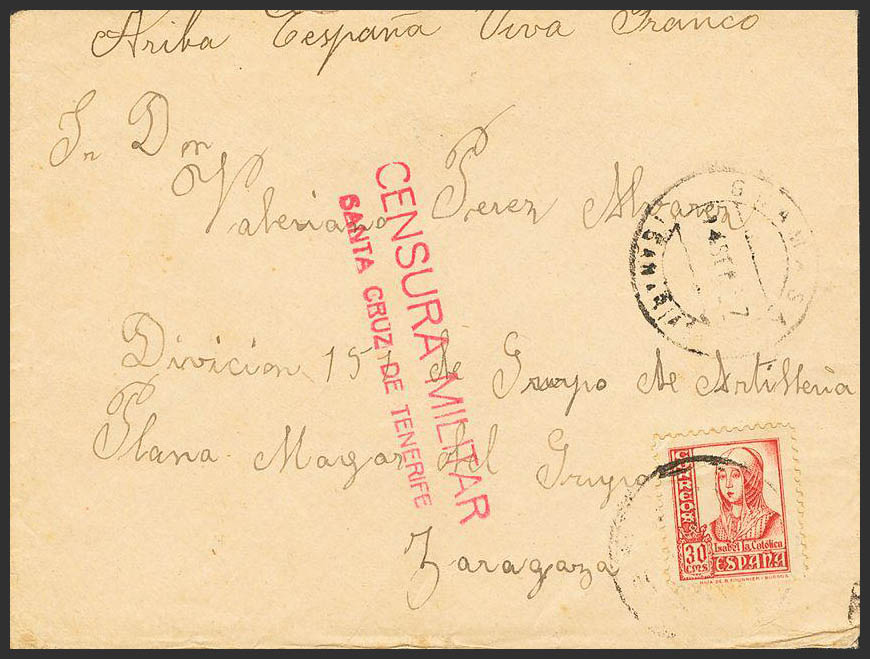 Ariba España Viva Franco
Sr Dn
Valeriano Perez Alvarez
CENSURA MILITAR
SANTA CRUZ DE TENERIFE
Divicion 15 de Grupo de Artilleria
Plana Magor del Grupo
Zaragaza
CORREOS
Isabel la Católica
30 CTS.
ESPAÑA
HIJA DE B. FOURNIER-BURGOS